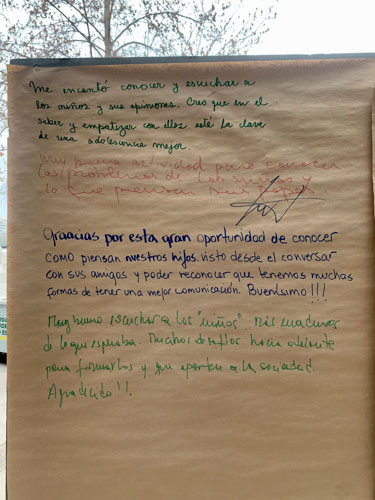 Me encantó conocer y escuchar a
los niños y sus opiniones. Creo que en el
saber y empatizar con ellos esté la clave
de una adolescencia mejor.
Muy buena actividad para conocer
las problemas de los niños y
lo que piensan sus papas
Graacias por esta gran oportunidad de conocer
como piensan nuestros hijos, visto desde el conversar
con sus amigos y poder reconocer que tenemos muchas
formas de tener una mejor comunicación. Buenísimo!!!
Muy bueno escuchar a los "niños". Más maduros
d lo que esperaba. Muchos desafíos hacia adelante
para formarlos y que aporten a la sociedad.
Agradecido!!.